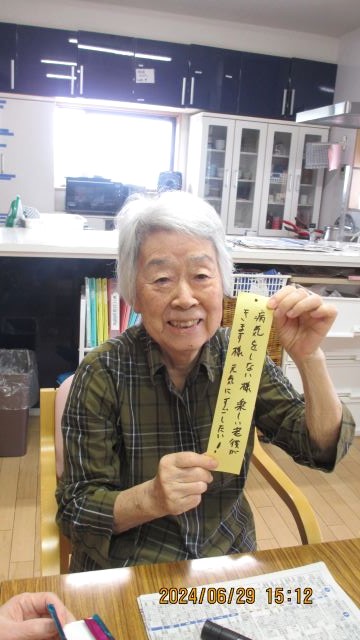 病気をしない様 楽しい老後が
きます様 元気にすごしたい!
2024/06/29 15:12